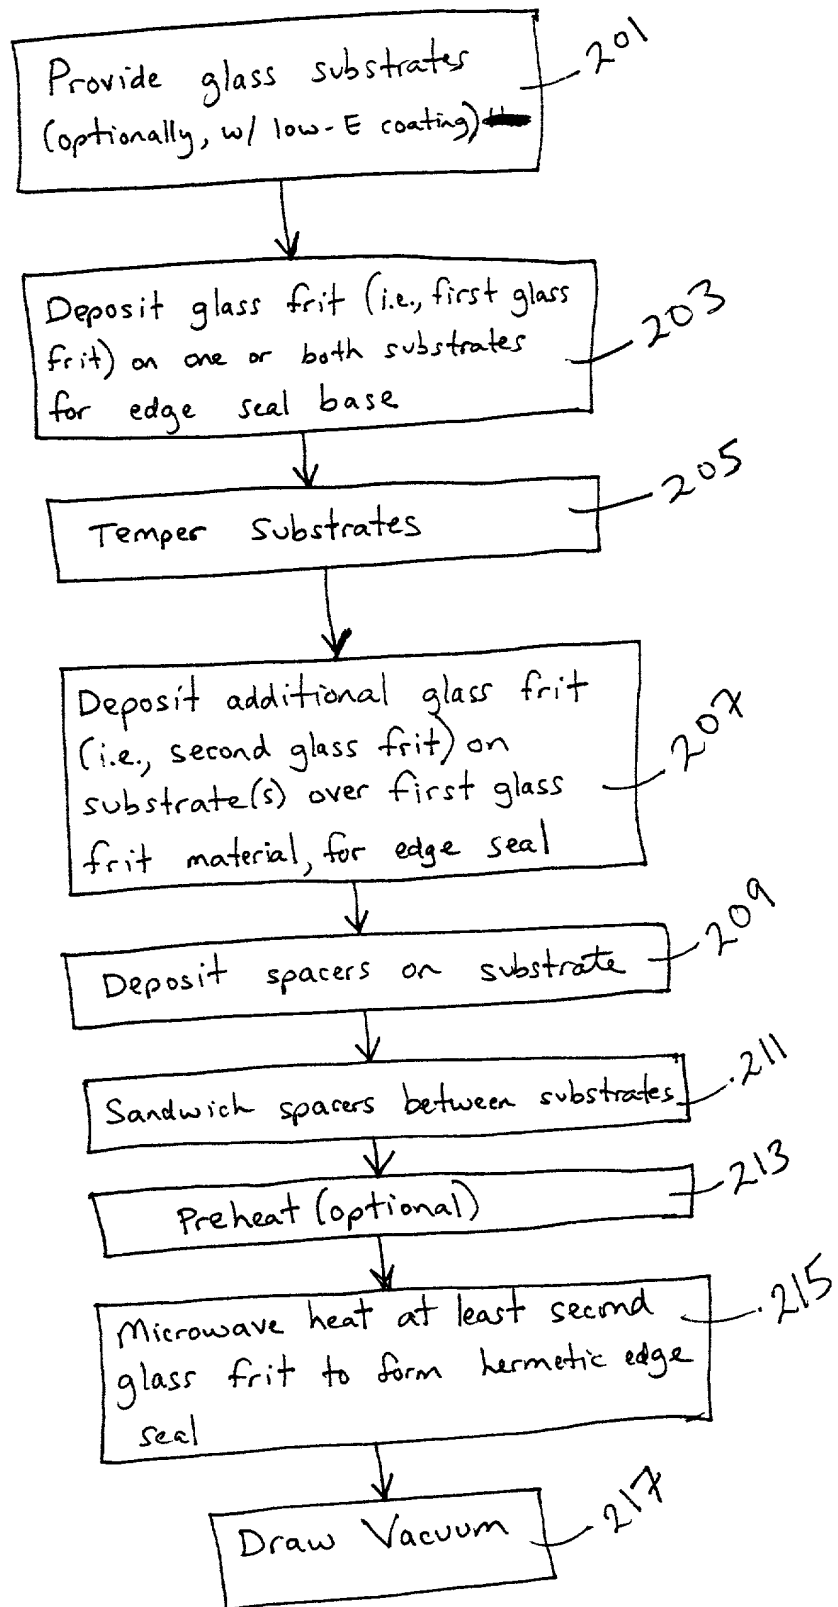 Provide glass substrates
201
(optionally, w/ low-E coating)
Deposit glass frit (i.e., first glass
frit) on one or both substrates
203
for edge seal base
205
Temper Substrates
Deposit additional glass frit
(i.e., second glass frit) on
207
substrate(s) over first glass
frit material, for edge seal
209
Deposit spacers on substrate
211
Sandwich spacers between substrates
213
Preheat (optional)
Microwave heat at least second
215
glass frit to form hermetic edge
seal
Draw Vacuum
217